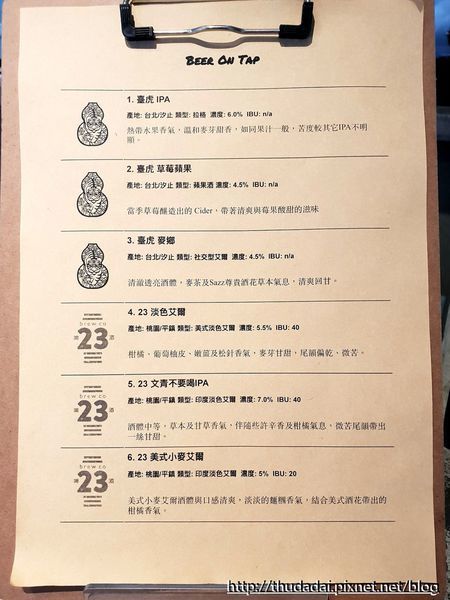 BEER ON TAP
1. 臺虎 IPA
產地: 台北/汐止 類型: 拉格 濃度: 6.0% IBU: n/a
熱帶水果香氣，溫和麥芽甜香，如同果汁一般，苦度較其它IPA不明
顯。
2. 臺虎 草莓蘋果
產地: 台北/汐止 類型: 蘋果酒 濃度: 4.5% IBU: n/a
當季草莓釀造出的 Cider，帶著清爽與莓果酸甜的滋味
3. 臺虎 麥鄉
產地: 台北/汐止 類型: 社交型艾爾 濃度: 4.5% IBU: n/a
清澈透亮酒體，麥茶及Sazz尊貴酒花草本氣息，清爽回甘。
brew co
23
4. 23 淡色艾爾
產地: 桃園/平鎮 類型: 美式淡色艾爾 濃度: 5.5% IBU: 40
柑橘、葡萄柚皮、嫩薑及松針香氣，麥芽甘甜，尾韻偏乾、微苦。
brew co
23
5. 23 文青不要喝IPA
產地: 桃園/平鎮 類型: 印度淡色艾爾 濃度: 7.0% IBU: 40
酒體中等，草本及甘草香氣，伴隨些許辛香及柑橘氣息，微苦尾韻帶出
一絲甘甜。
brew co
23
6. 23 美式小麥艾爾
產地: 桃園/平鎮 類型: 印度淡色艾爾 濃度: 5% IBU: 20
美式小麥艾爾酒體與口感清爽，淡淡的麵糰香氣，結合美式酒花帶出的
柑橘香氣。
http://thudadai.pixnet.net/blog